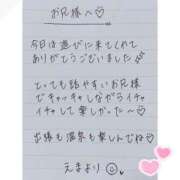 お兄様へ♡
今日は遊びに来てくれて
ありがとうございました
とっても話やすいお兄様
でキャッキャしながらイチャ
イチャして楽しかった〜♡
出張も温泉も楽しんでね♡
えまより☺